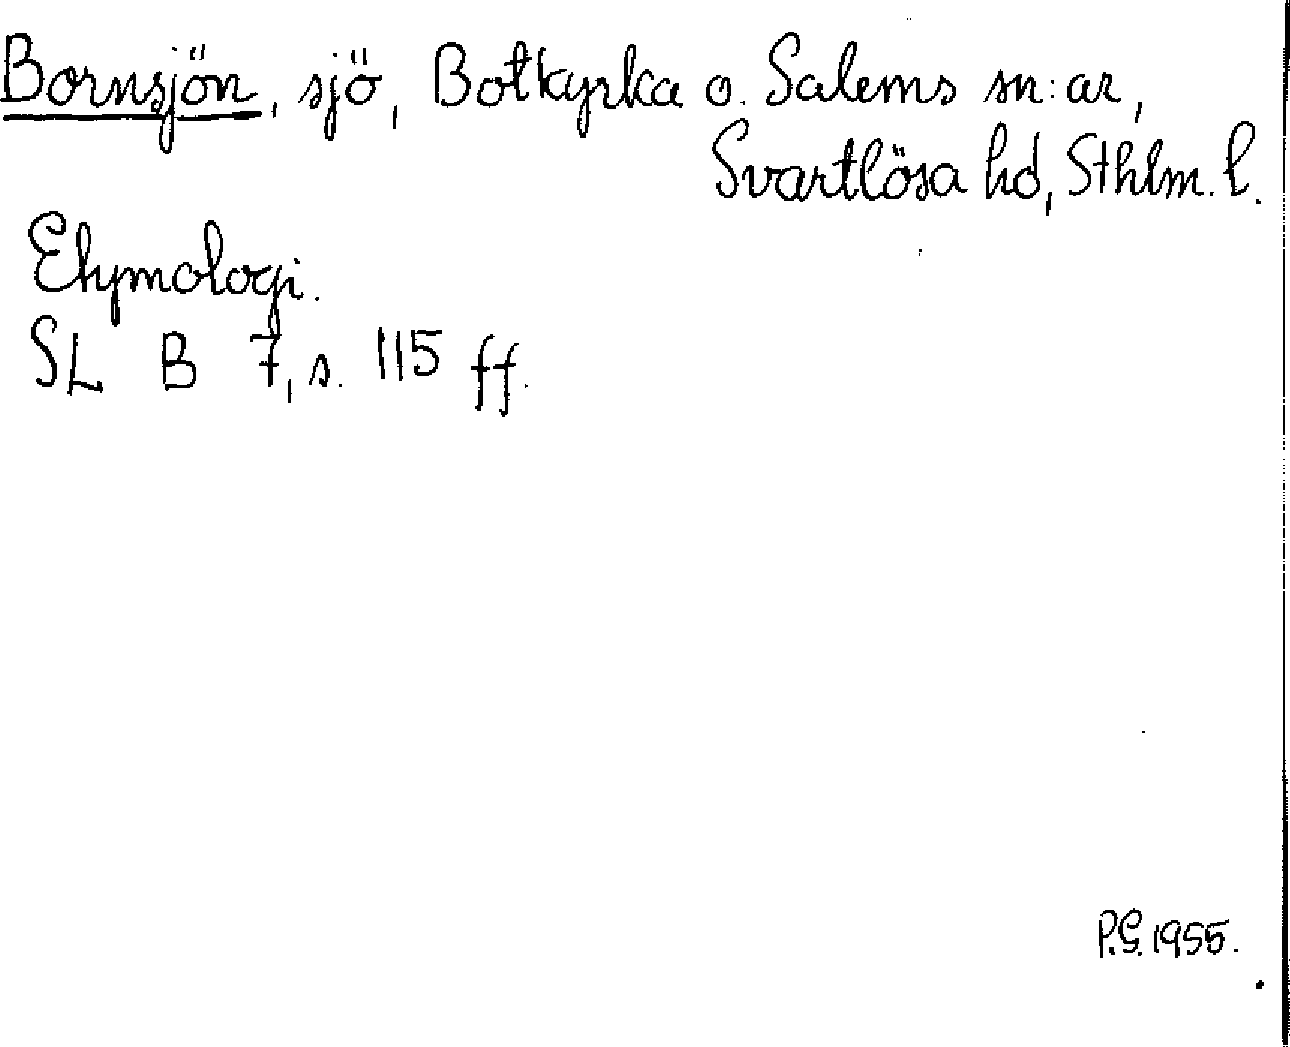 Bornsjön, sjö, Botkyrka o. Salems sn:ar,
Svartlösa hd, Sthlm. l.
Etymologi.
SL B 7, s. 115 ff.
P.G. 1955.